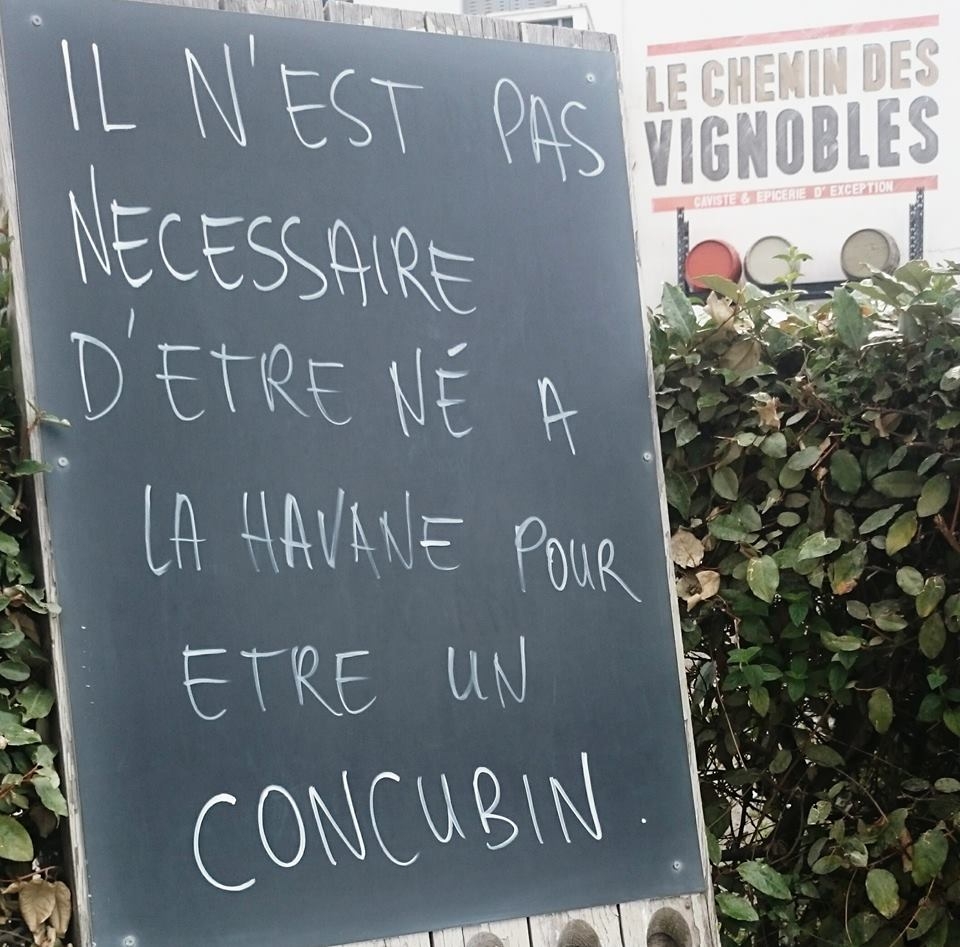 IL N'EST PAS
NECESSAIRE
D'ETRE NÉ A
LA HAVANE POUR
ETRE UN
CONCUBIN.
LE CHEMIN DES
VIGNOBLES
CAVISTE & EPICERIE D'EXCEPTION